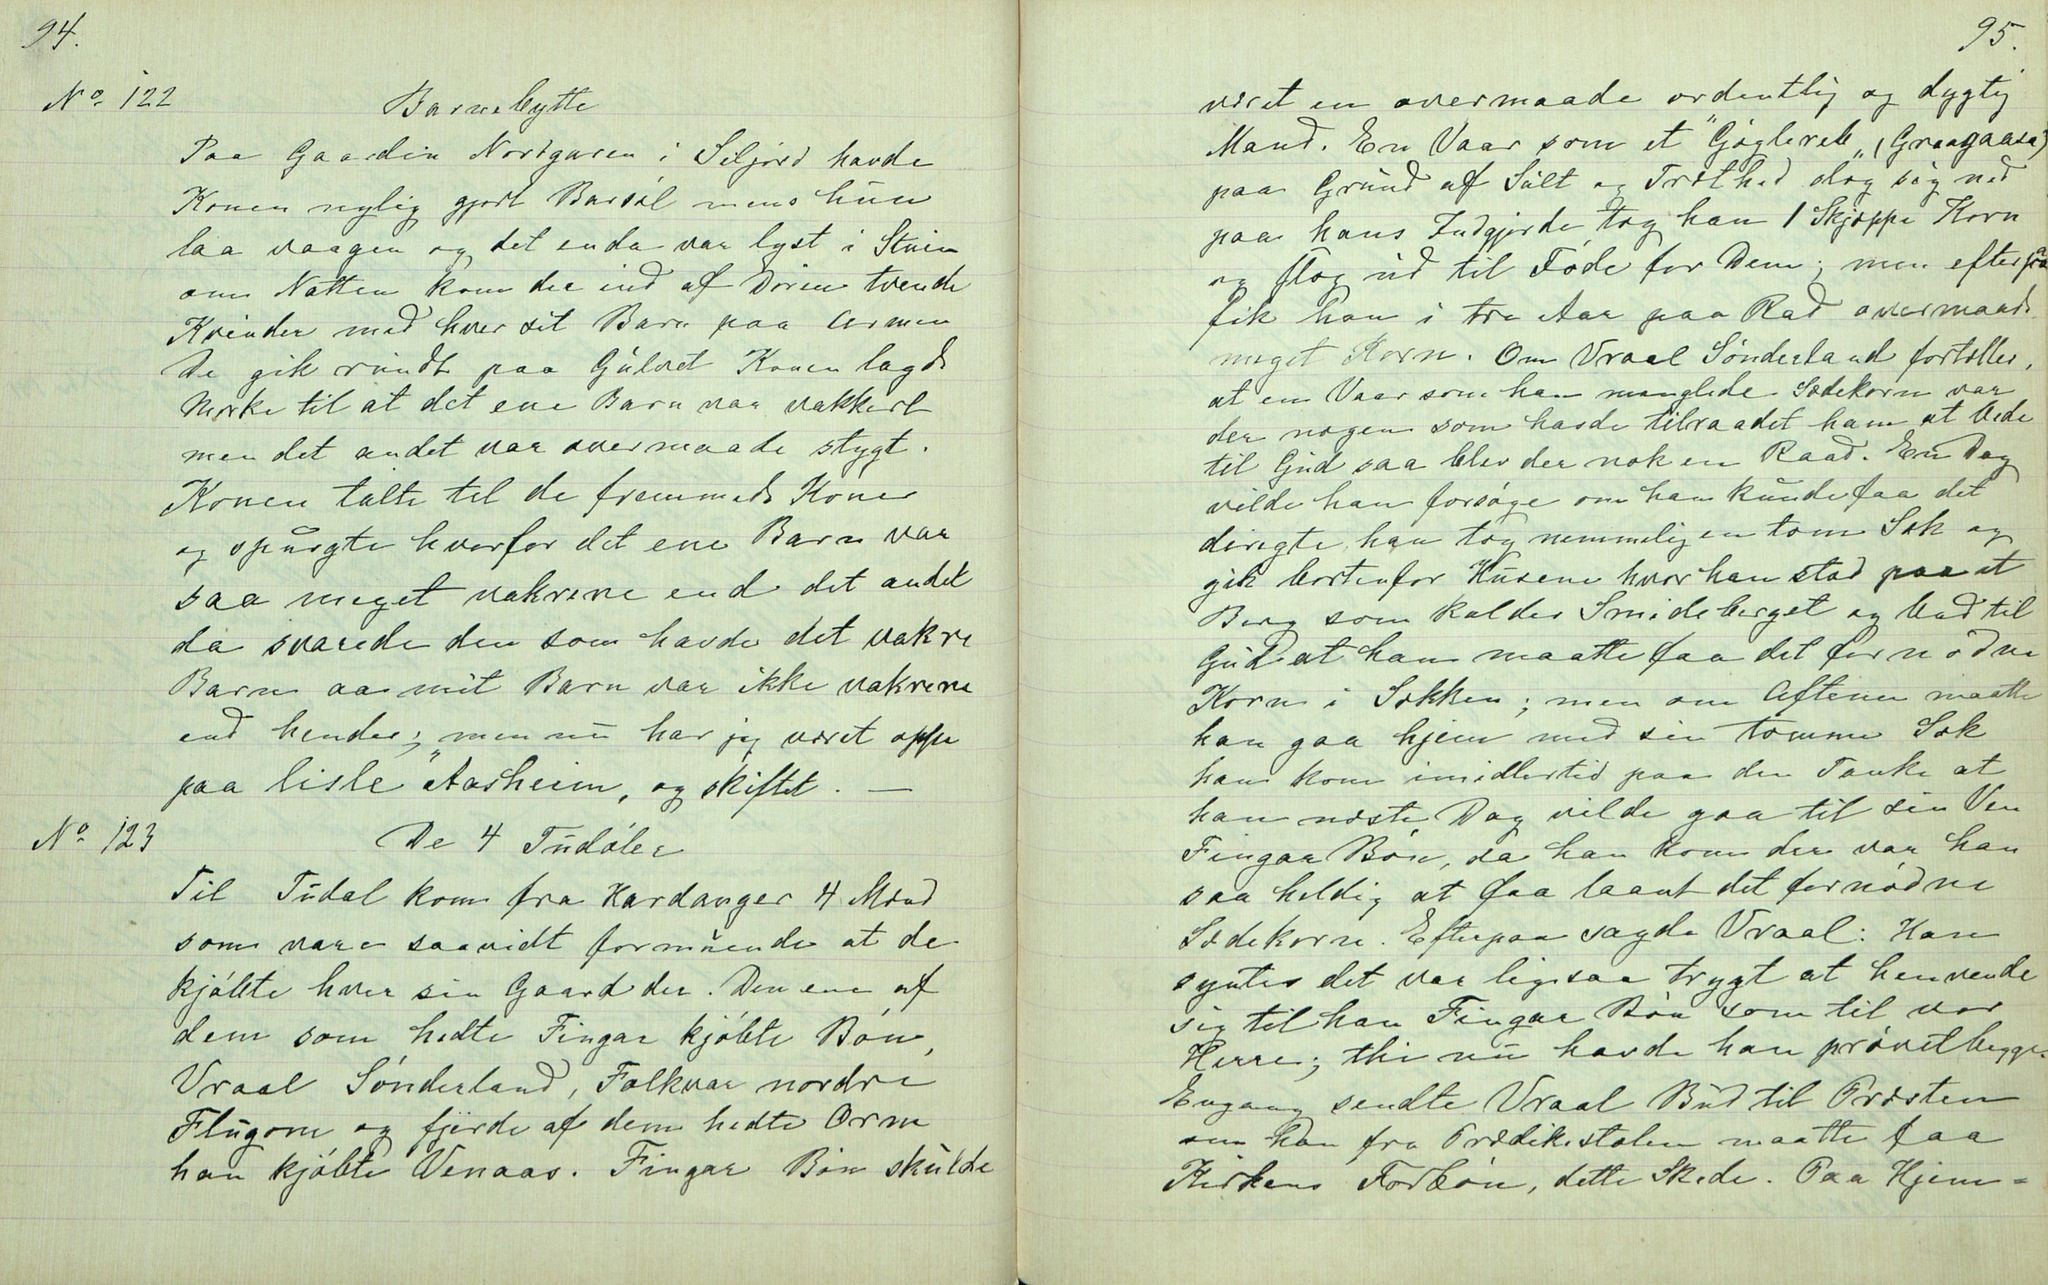 94.
No 122
Barnebytte
Paa Gaarden Nordgaren i Seljord havde
Konen nylig gjort Barsøl mens hun
laa vaagen og det enda var lyst i Stuen
om Natten kom der ind af Døren tvende
Kvinder med hver sit Barn paa Armen
De gik rundt paa Gulvet Konen lagde
Merke til at det ene Barn var vakkert
men det andet var overmaade stygt.
Konen talte til de fremmede Koner
og spurgte hvorfor det ene Barn var
saa meget vakrere end det andet
da svarede den som havde det vakre
Barn aa mit Barn var ikke vakrere
end hendes; men nu har jeg været oppe
paa lisle "Aasheim„ og skiftet. —
No 123
De 4 Tudøler
Til Tudal kom fra Hardanger 4 Mænd
som vare saavidt formuende at de
kjøbte hver sin Gaard der. Den ene af
dem som hedte Fingar kjøbte Bøn,
Vraal Sønderland, Falkvar nordre
Flugom og fjerde af dem hedte Orm
han kjøbte Venaas. Fingar Bøn skulde
95.
været en overmaade ordentlig og dygtig
Mand. En Vaar som et "Gjøglerek„ (Graagaasa)
paa Grund af Sult og Træthed slog sig ned
paa hans Indgjerde tog han 1 Skjæppe Korn
og slog ud til Føde for Dem; men efterpaa
fik han i tre Aar paa Rad overmaade
meget Korn. Om Vraal Sønderland fortælles,
at en Vaar som han manglede Sædekorn var
der nogen som havde tilraadet ham at bede
til Gud saa blev der nok en Raad. En Dag
vilde han forsøge om han kunde faa det
dirigte, han tog nemmelig en tom Sæk og
gik bortenfor Husene hvor han stod paa et
Berg som kaldes Smideberget og bad til
Gud at han maatte faa det fornødne
Korn i Sækken; men om Aftenen maatte
han gaa hjem med sin tomme Sæk
han kom imidlertid paa den Tanke at
han næste Dag vilde gaa til sin Ven
Fingar Bøn, da han kom der var han
saa heldig at faa laant det fornødne
Sædekorn. Efterpaa sagde Vraal: Han
syntes det var ligesaa trygt at henvende
sig til han Fingar Bøn som til vor
Herre; thi nu havde han prøvet begge.
Engang sendte Vraal Bud til Præsten
om han fra Prædikestolen maatte faa
Kirkens Forbøn, dette Skede. Paa Hjem=